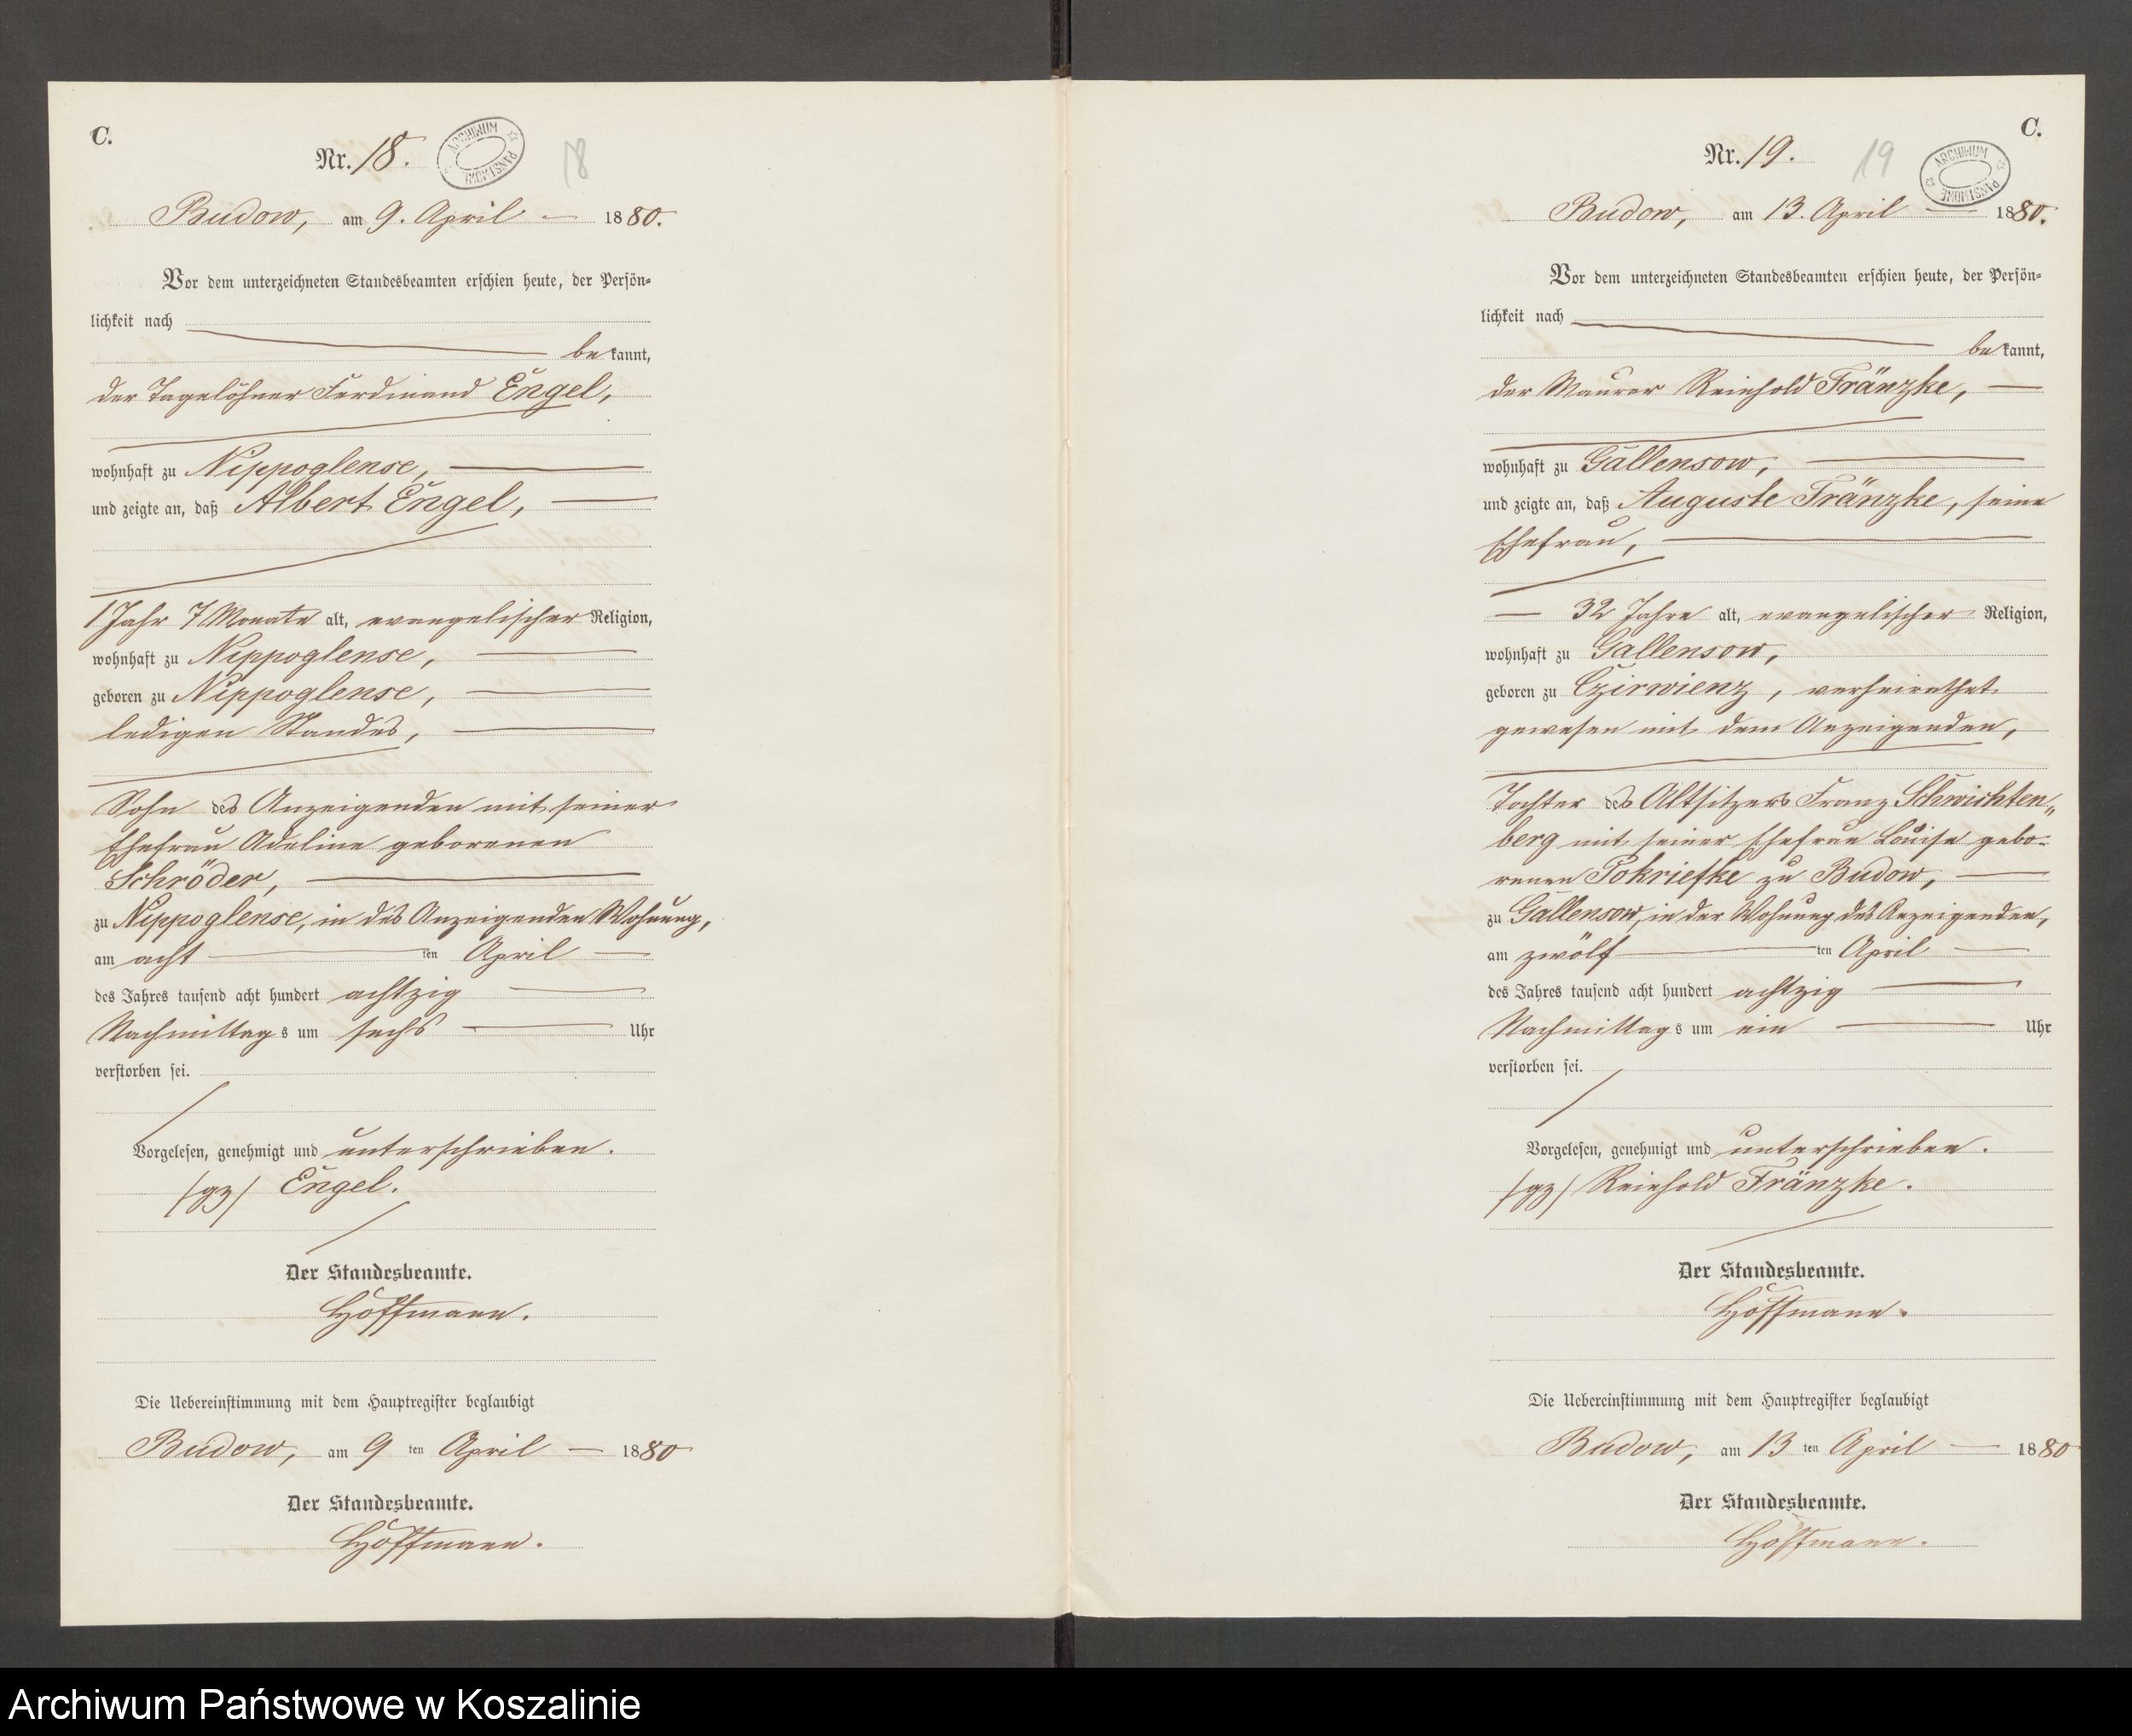 C.
Nr. 18.
ARCHIWUM PAŃSTWOWE
18
Budow, am 9. April 1880.
Vor dem unterzeichneten Standesbeamten erschien heute, der Persön=
lichkeit nach
bekannt,
der Tagelöhner Ferdinand Engel,
wohnhaft zu Nippoglense,
und zeigte an, daß Albert Engel,
1 Jahr 7 Monate alt, evangelischer Religion,
wohnhaft zu Nippoglense,
geboren zu Nippoglense,
ledigen Standes,
Sohn des Anzeigenden mit seiner
Ehefrau Adeline geborenen
Schröder,
zu Nippoglense, in des Anzeigenden Wohnung,
am acht ten April
des Jahres tausend acht hundert achtzig
Nachmittags um sechs Uhr
verstorben sei.
Vorgelesen, genehmigt und unterschrieben.
/gz/ Engel.
Der Standesbeamte.
Hoffmann.
Die Uebereinstimmung mit dem Hauptregister beglaubigt
Budow, am 9 ten April 1880
Der Standesbeamte.
Hoffmann.
C.
Nr. 19.
19
ARCHIWUM PAŃSTWOWE
Budow, am 13. April 1880.
Vor dem unterzeichneten Standesbeamten erschien heute, der Persön=
lichkeit nach
bekannt,
der Maurer Reinhold Fränzke,
wohnhaft zu Gallensow,
und zeigte an, daß Auguste Fränzke, seine
Ehefrau,
32 Jahre alt, evangelischer Religion,
wohnhaft zu Gallensow,
geboren zu Czirwienz, verheirathet
gewesen mit dem Anzeigenden,
Tochter des Altsitzers Franz Schwichten„
berg mit seiner Ehefrau Louise gebo-
renen Pokriefke zu Budow,
zu Gallensow, in der Wohnung des Anzeigenden,
am zwölf ten April
des Jahres tausend acht hundert achtzig
Nachmittags um ein Uhr
verstorben sei.
Vorgelesen, genehmigt und unterschrieben.
/gz/ Reinhold Fränzke.
Der Standesbeamte.
Hoffmann.
Die Uebereinstimmung mit dem Hauptregister beglaubigt
Budow, am 13 ten April 1880
Der Standesbeamte.
Hoffmann.
Archiwum Państwowe w Koszalinie